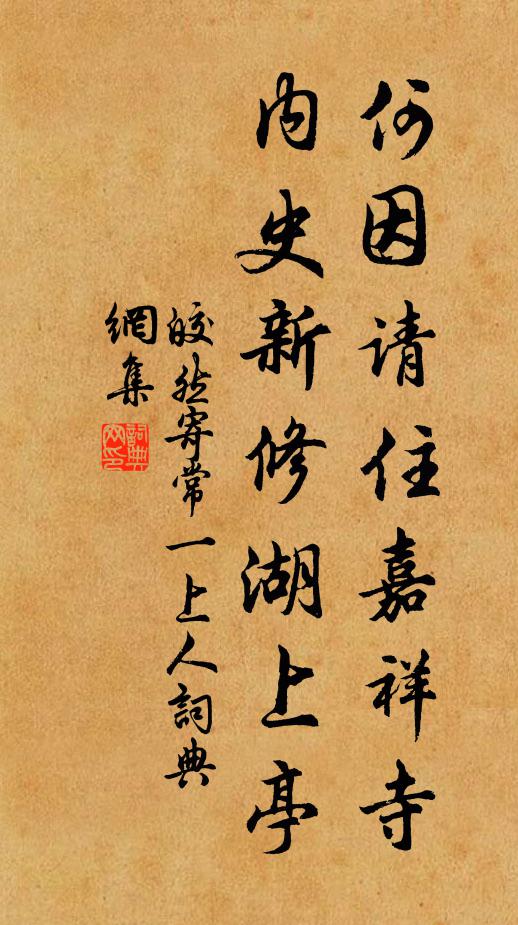 何因请住嘉祥寺
内史新修湖上亭
皎然寄常一上人詞典
網集
詞典网印